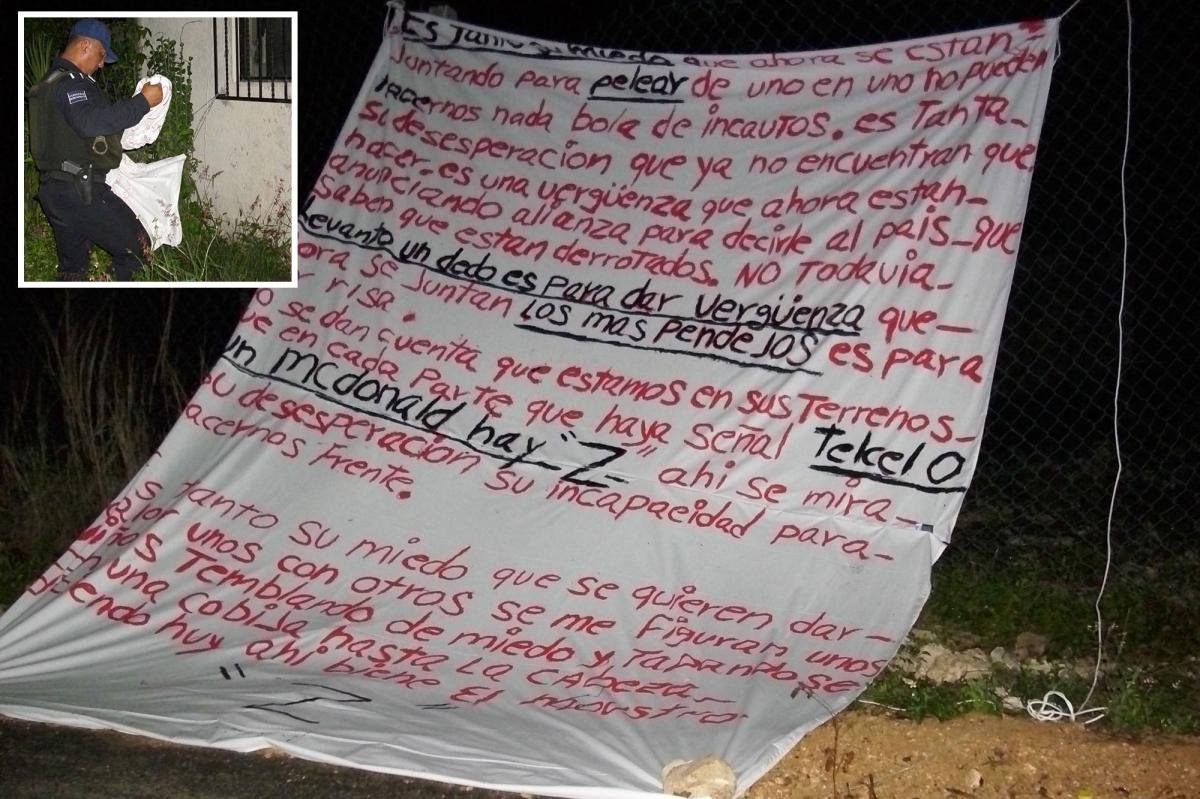 ES Tanto su miedo que ahora se estan
Juntando para pelear de uno en uno no pueden
Hacernos nada bola de incautos. es Tanta_
su desesperacion que ya no encuentran que
hacer. es una vergüenza que ahora estan_
anunciando alianza para decirle al pais_que
Saben que estan derrotados. NO Todavia_
Levanto un dedo es para dar vergüenza que_
ora se Juntan los mas pendejos es para
risa.
o se dan cuenta que estamos en sus Terrenos_
ue en cada Parte que haya Señal Telcel O
un mcdonald hay "Z" ahi se mira_
su desesperacion su incapacidad para_
acernos Frente.
s tanto su miedo que se quieren dar_
alor unos con otros se me Figuran unos
niños Temblando de miedo y Tapandose
en una Cobija hasta La cabeza_
iciendo huy ahi biene El mostro
"Z"